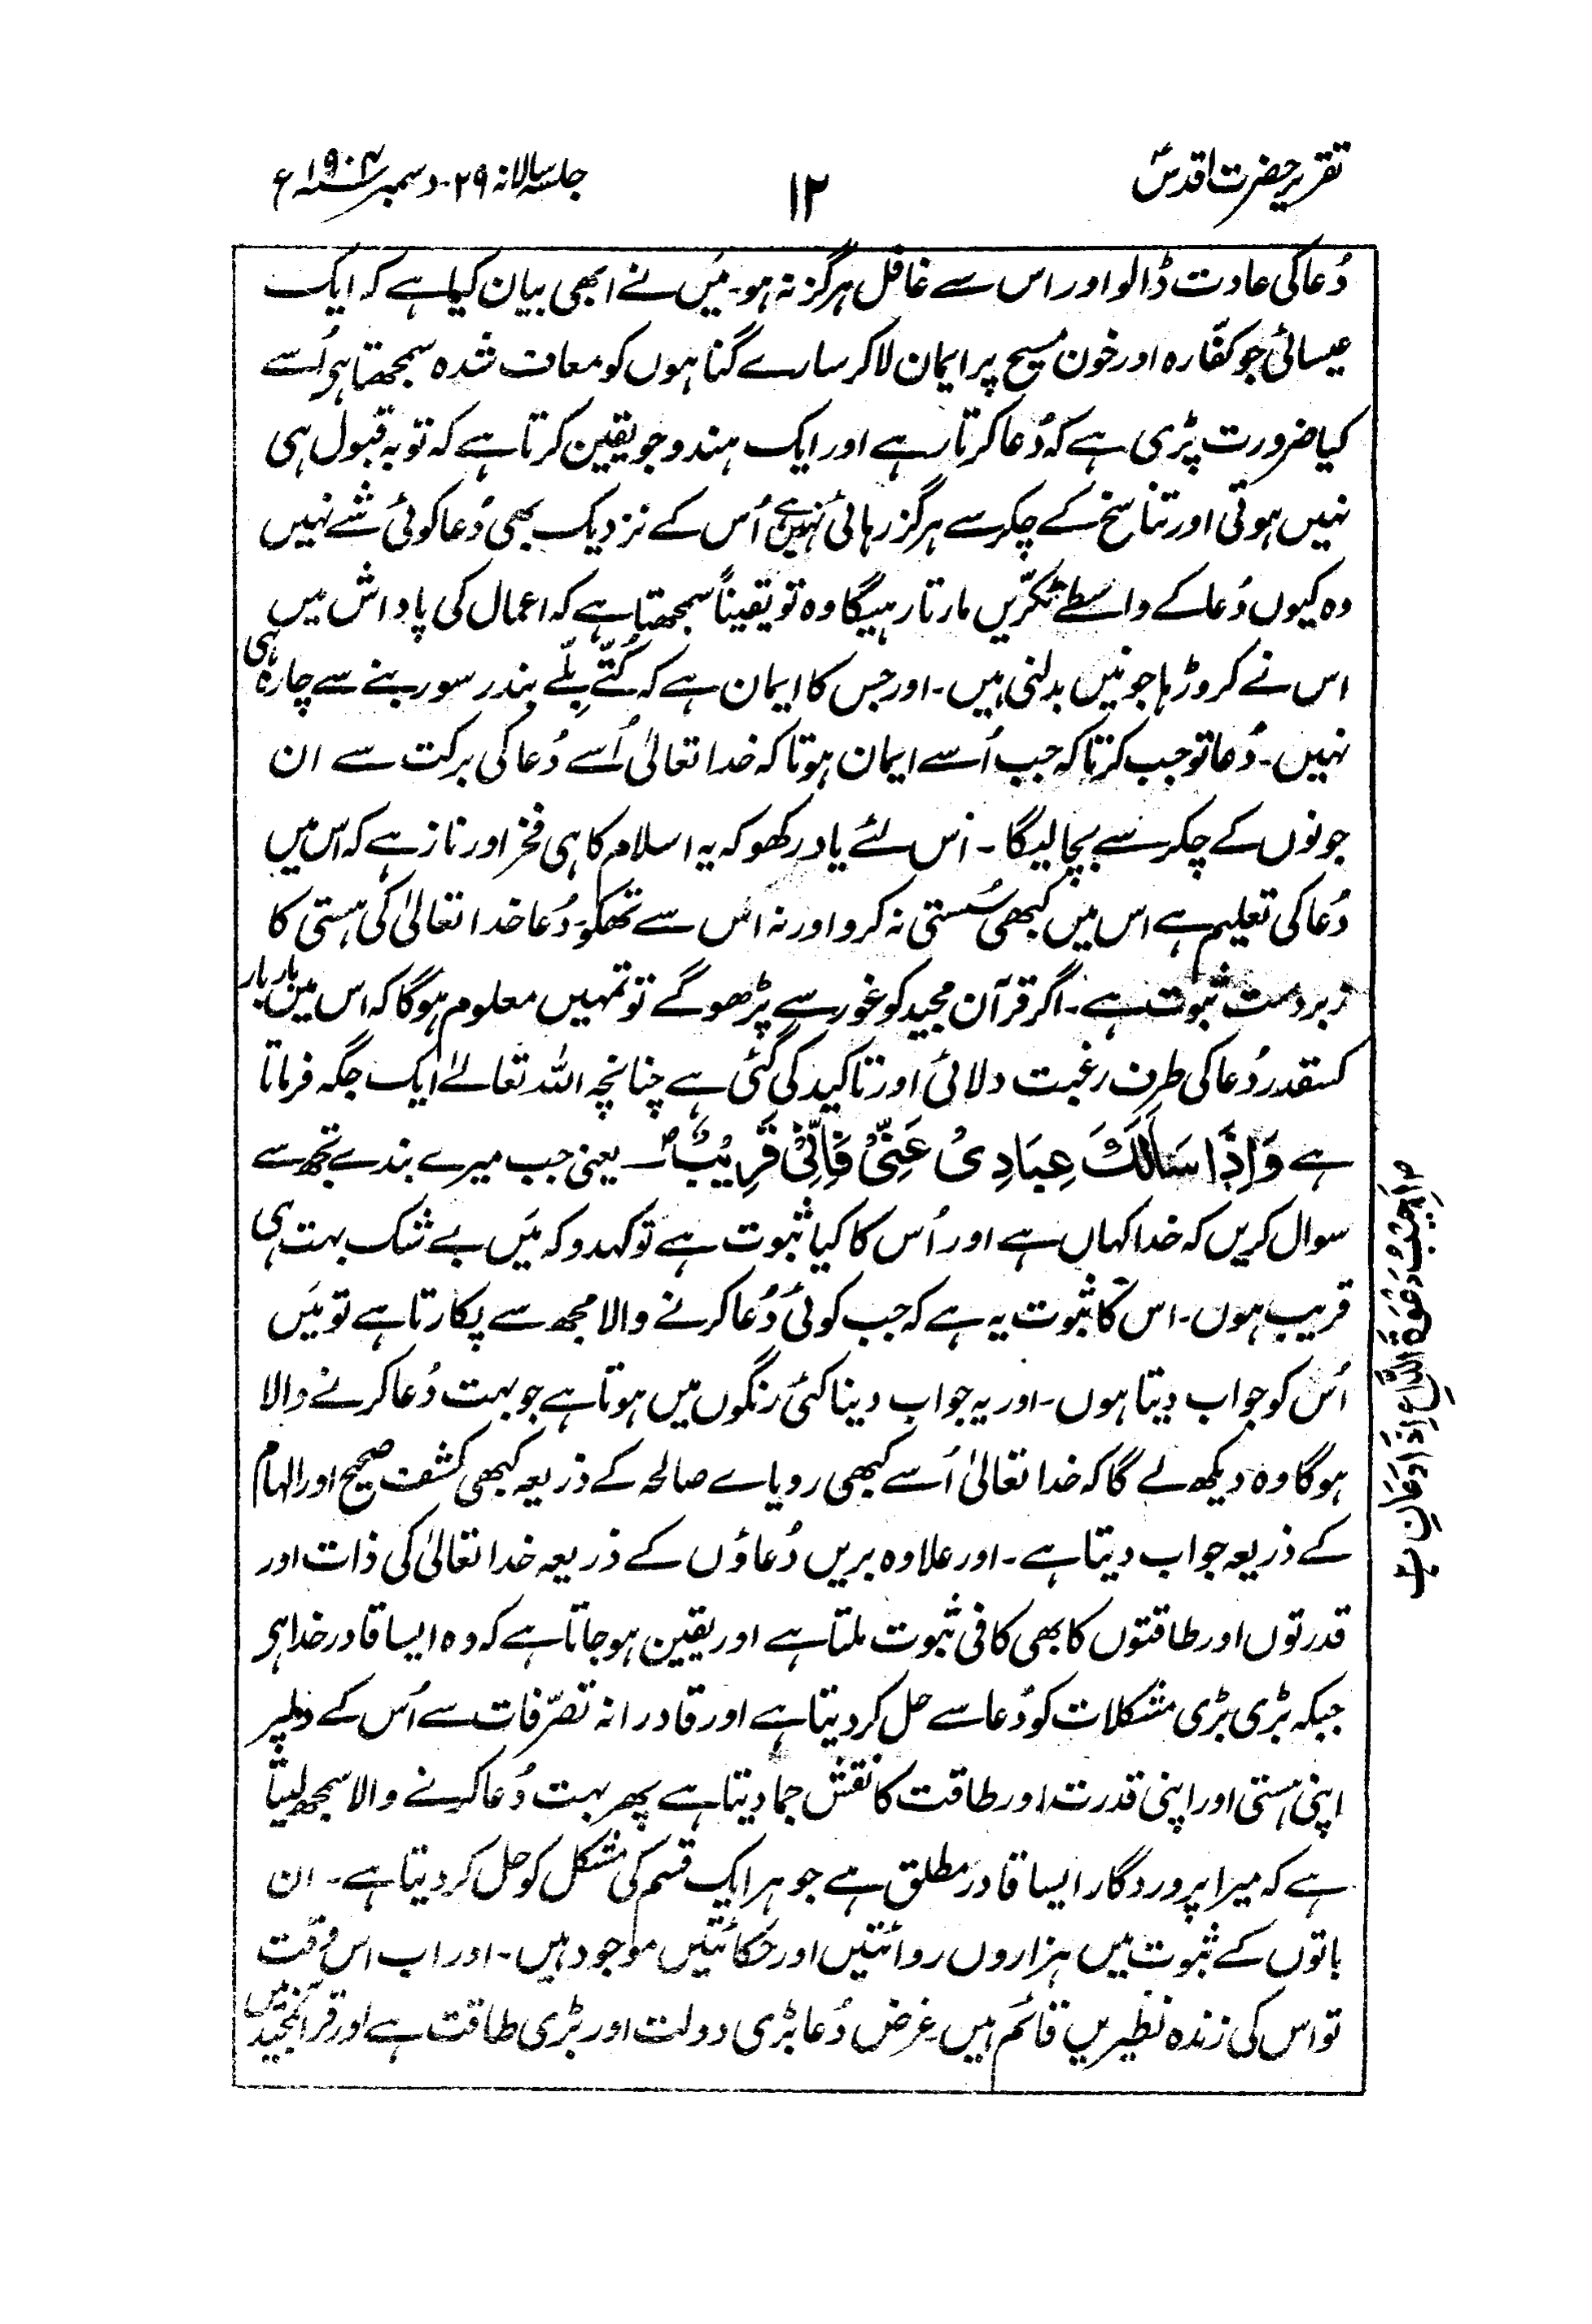 تقریر حضرت اقدسؑ
۱۲
جلسہ سالانہ ۲۹- دسمبر ۱۹۰۴ء
دُعا کی عادت ڈالو اور اس سے غافل ہرگز نہ ہو۔ میں نے ابھی بیان کیا ہے کہ ایک
عیسائی جو کفّارہ اور خون مسیح پر ایمان لا کر سارے گناہوں کو معاف شدہ سمجھتا ہی اُسے
کیا ضرورت پڑی ہے کہ دُعا کرتا رہے اور ایک ہندو جو یقین کرتا ہے کہ توبہ قبول ہی
نہیں ہوتی اور تناسخ کے چکر سے ہرگز رہائی نہیں ہے اُس کے نزدیک بھی دُعا کوئی شے نہیں
وہ کیوں دُعا کے واسطے ٹکّریں مارتا رہیگا وہ تو یقیناً سمجھتا ہے کہ اعمال کی پاداش میں
اس نے کروڑہا جونیں بدلنی ہیں۔ اور جس کا ایمان ہے کہ کُتّے بِلّے بندر سور بنے سے چارہ ہی
نہیں۔ دُعا تو جب کرتا کہ جب اُسے ایمان ہوتا کہ خدا تعالیٰ اُسے دُعا کی برکت سے ان
جونوں کے چکر سے بچا لیگا۔ اس لئے یاد رکھو کہ یہ اسلام کا ہی فخر اور ناز ہے کہ اس میں
دُعا کی تعلیم ہے اس میں کبھی سُستی نہ کرو اور نہ اس سے تھکو۔ دُعا خدا تعالیٰ کی ہستی کا
زبردست ثبوت ہے۔ اگر قرآن مجید کو غور سے پڑھو گے تو تمہیں معلوم ہوگا کہ اس میں بار بار
کسقدر دُعا کی طرف رغبت دلائی اور تاکید کی گئی ہے چنانچہ اللہ تعالےٰ ایک جگہ فرماتا
ہے وَاِذَا سَاَلَكَ عِبَادِیْ عَنِّیْ فَاِنِّیْ قَرِیْبٌ ؕ یعنی جب میرے بندے تجھ سے
سوال کریں کہ خدا کہاں ہے اور اُس کا کیا ثبوت ہے تو کہدو کہ میَں بے شک بہت ہی
قریب ہوں۔ اس کا ثبوت یہ ہے کہ جب کوئی دُعا کرنے والا مجھ سے پکارتا ہے تو میَں
اُس کو جواب دیتا ہوں۔ اور یہ جواب دینا کئی رنگوں میں ہوتا ہے جو بہت دُعا کرنے والا
ہوگا وہ دیکھ لے گا کہ خدا تعالیٰ اُسے کبھی رویاے صالحہ کے ذریعہ کبھی کشف صحیح اور الہام
کے ذریعہ جواب دیتا ہے۔ اور علاوہ بریں دُعاؤں کے ذریعہ خدا تعالیٰ کی ذات اور
قدرتوں اور طاقتوں کا بھی کافی ثبوت ملتا ہے اور یقین ہو جاتا ہے کہ وہ ایسا قادر خدا ہی
جبکہ بڑی بڑی مشکلات کو دُعا سے حل کر دیتا ہے اور قادرانہ تصرّفات سے اُس کے دلپر
اپنی ہستی اور اپنی قدرت اور طاقت کا نقش جما دیتا ہے پھر بہت دُعا کرنے والا سمجھ لیتا
ہے کہ میرا پروردگار ایسا قادر مطلق ہے جو ہر ایک قسم کی مشکل کو حل کر دیتا ہے۔ ان
باتوں کے ثبوت میں ہزاروں روائتیں اور حکائتیں موجود ہیں۔ اور اب اس وقت
تو اس کی زندہ نظیریں قائم ہیں غرض دُعا بڑی دولت اور بڑی طاقت ہے اور قرآنمجید میں
اُجِیْبُ دَعْوَةَ الدَّاعِ اِذَا دَعَانِ